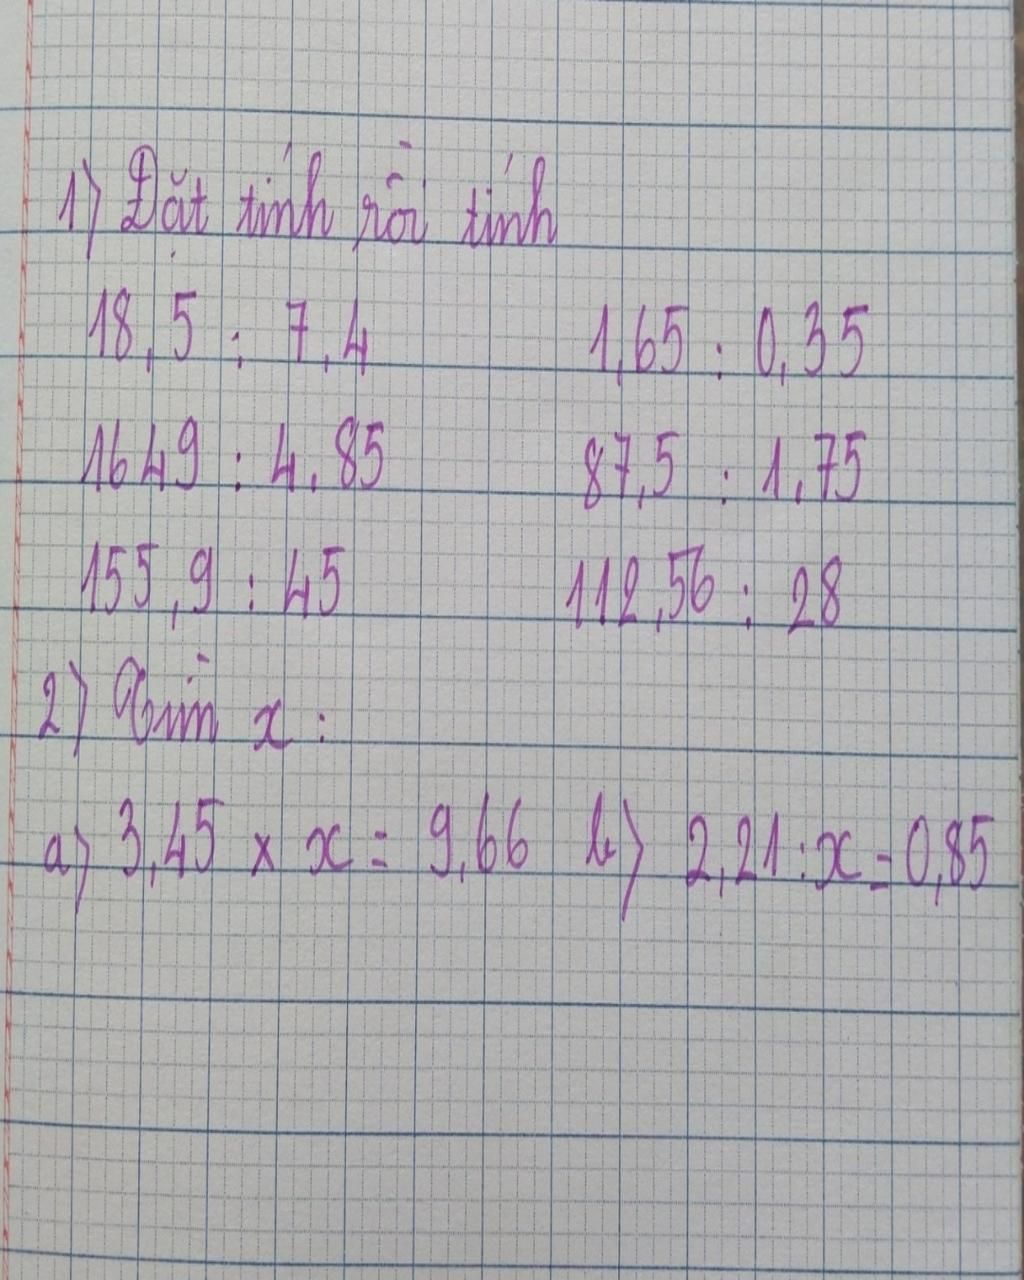 1) Đặt tính rồi tính
18,5 : 7,4 1,65 : 0,35
1649 : 4,85 87,5 : 1,75
155,9 : 45 112,56 : 28
2) Tìm x :
a) 3,45 × x = 9,66 b) 2,21 : x = 0,85